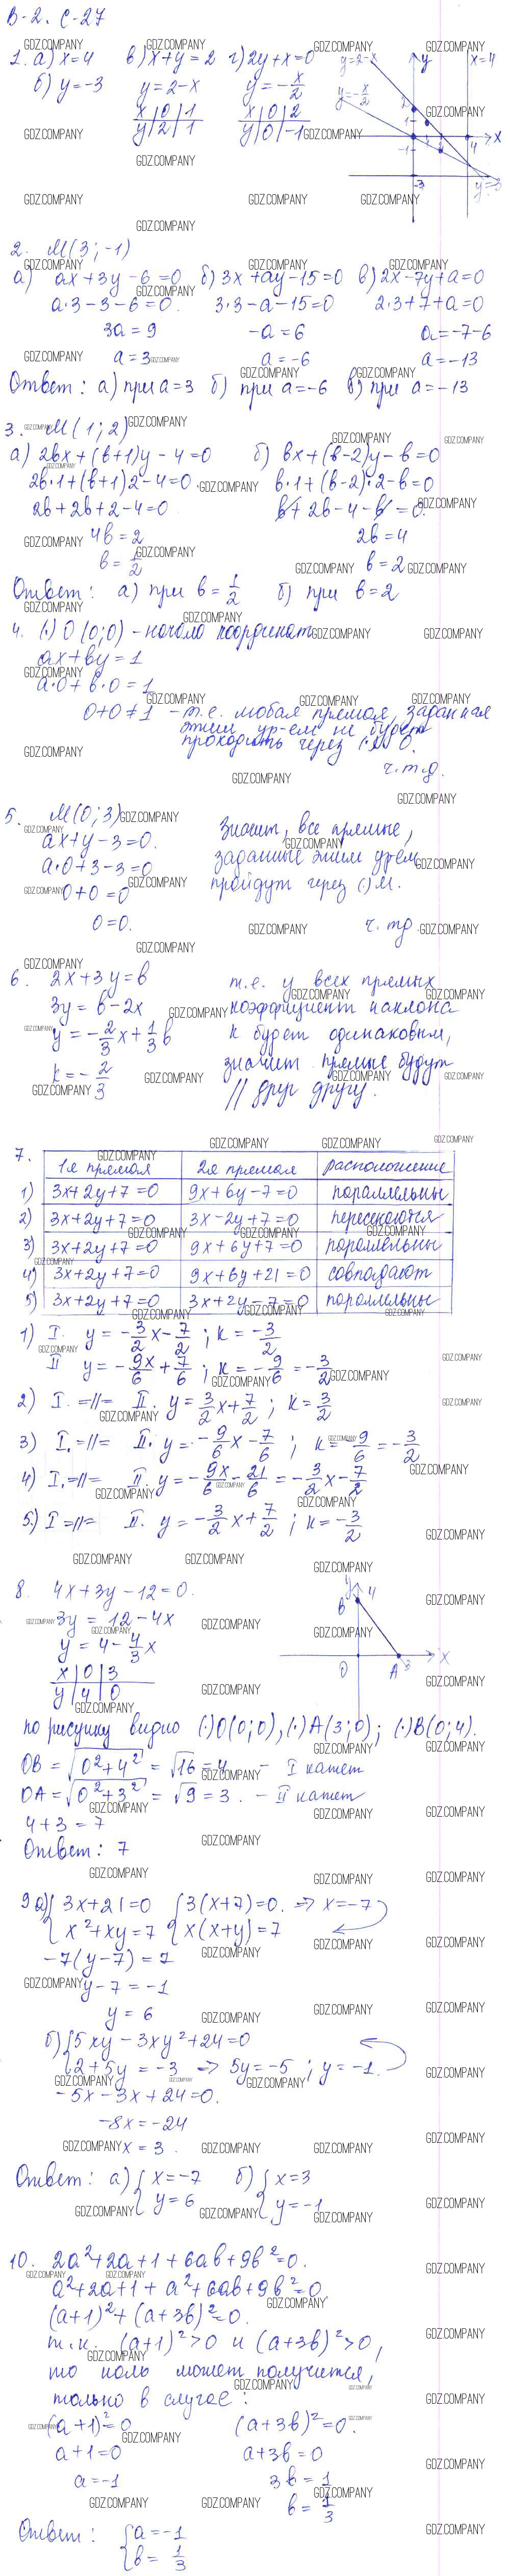 В-2. С-27
1. а) x=4 в) x+y=2 г) 2y+x=0
б) y=-3 y=2-x y=-x/2
x | 0 | 1 x | 0 | 2
y | 2 | 1 y | 0 | -1
y=2-x y x=4
y=-x/2
2
1
-1
4 x
-3 y=-3
2. М(3; -1)
а) ax+3y-6=0 б) 3x+ay-15=0 в) 2x-7y+a=0
a·3-3-6=0. 3·3-a-15=0 2·3+7+a=0
3a=9 -a=6 a=-7-6
a=3 a=-6 a=-13
Ответ: а) при a=3 б) при a=-6 в) при a=-13
3. М(1; 2)
а) 2bx+(b+1)y-4=0 б) bx+(b-2)y-b=0
2b·1+(b+1)2-4=0. b·1+(b-2)·2-b=0
2b+2b+2-4=0 b+2b-4-b=0.
4b=2 2b=4
b=1/2 b=2
Ответ: а) при b=1/2 б) при b=2
4. (·) О(0;0) - начало координат
ax+by=1
a·0+b·0=1
0+0≠1 - т.е. любая прямая, заданная
этим ур-ем не будет
проходить через (·) О.
ч.т.д.
5. М(0; 3) Значит, все прямые,
ax+y-3=0. заданные этим ур-ем
a·0+3-3=0 пройдут через (·) М.
0+0=0
0=0. ч.тд.
6. 2x+3y=b т.е. у всех прямых
3y=b-2x коэффициент наклона
y=-2/3x+1/3b k будет одинаковым,
k=-2/3 значит прямые будут
// друг другу.
7. 1-я прямая | 2-я прямая | расположение
1) 3x+2y+7=0 | 9x+6y-7=0 | параллельны
2) 3x+2y+7=0 | 3x-2y+7=0 | пересекаются
3) 3x+2y+7=0 | 9x+6y+7=0 | параллельны
4) 3x+2y+7=0 | 9x+6y+21=0 | совпадают
5) 3x+2y+7=0 | 3x+2y-7=0 | параллельны
1) I. y=-3/2x-7/2; k=-3/2
II y=-9x/6+7/6; k=-9/6=-3/2
2) I. =//= II. y=3/2x+7/2; k=3/2
3) I. =//= II. y=-9/6x-7/6; k=-9/6=-3/2
4) I. =//= II. y=-9x/6-21/6=-3/2x-7/2
5) I =//= II. y=-3/2x+7/2; k=-3/2
8. 4x+3y-12=0. y 4
3y=12-4x B
y=4-4/3x
x | 0 | 3 O A 3 x
y | 4 | 0
по рисунку видно (·)О(0;0), (·)А(3;0); (·)В(0;4).
OB=√0²+4²=√16=4 - I катет
OA=√0²+3²=√9=3. - II катет
4+3=7
Ответ: 7
9 а) {3x+21=0 {3(x+7)=0. => x=-7
x²+xy=7 x(x+y)=7
-7(y-7)=7
y-7=-1
y=6
б) {5xy-3xy²+24=0
2+5y=-3 => 5y=-5; y=-1.
-5x-3x+24=0.
-8x=-24
x=3.
Ответ: а) {x=-7 б) {x=3
y=6 y=-1
10. 2a²+2a+1+6ab+9b²=0.
a²+2a+1+a²+6ab+9b²=0
(a+1)²+(a+3b)²=0.
т.к. (a+1)²>0 и (a+3b)²>0,
то ноль может получится,
только в случае:
(a+1)²=0 (a+3b)²=0.
a+1=0 a+3b=0
a=-1 3b=1
b=1/3
Ответ: {a=-1
b=1/3
GDZ.COMPANY